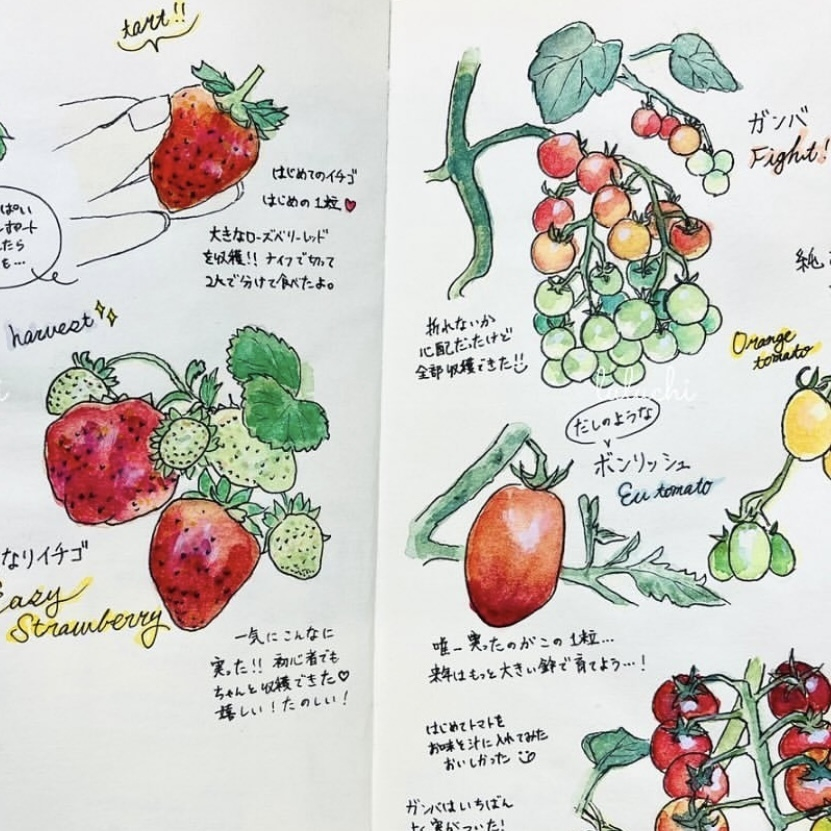 tart!!
はじめてのイチゴ
はじめの1粒♥
大きなローズベリーレッド
を収穫!! ナイフで切って
2人で分けて食べたよ。
ぱい
ポート
たら
も…
harvest
なりイチゴ
Easy
Strawberry
一気にこんなに
実った!! 初心者でも
ちゃんと収穫できた♡
嬉しい!たのしい!
ガンバ
Fight!
純
折れないか
心配だったけど
全部収穫できた!!
Orange
tomato
だしのような
ボンリッシュ
Eu tomato
唯一実ったのがこの1粒…
来年はもっと大きい鉢で育てよう…!
はじめてトマトを
お味そ汁に入れてみた
おいしかった
ガンバはいちばん
よく実がついた!